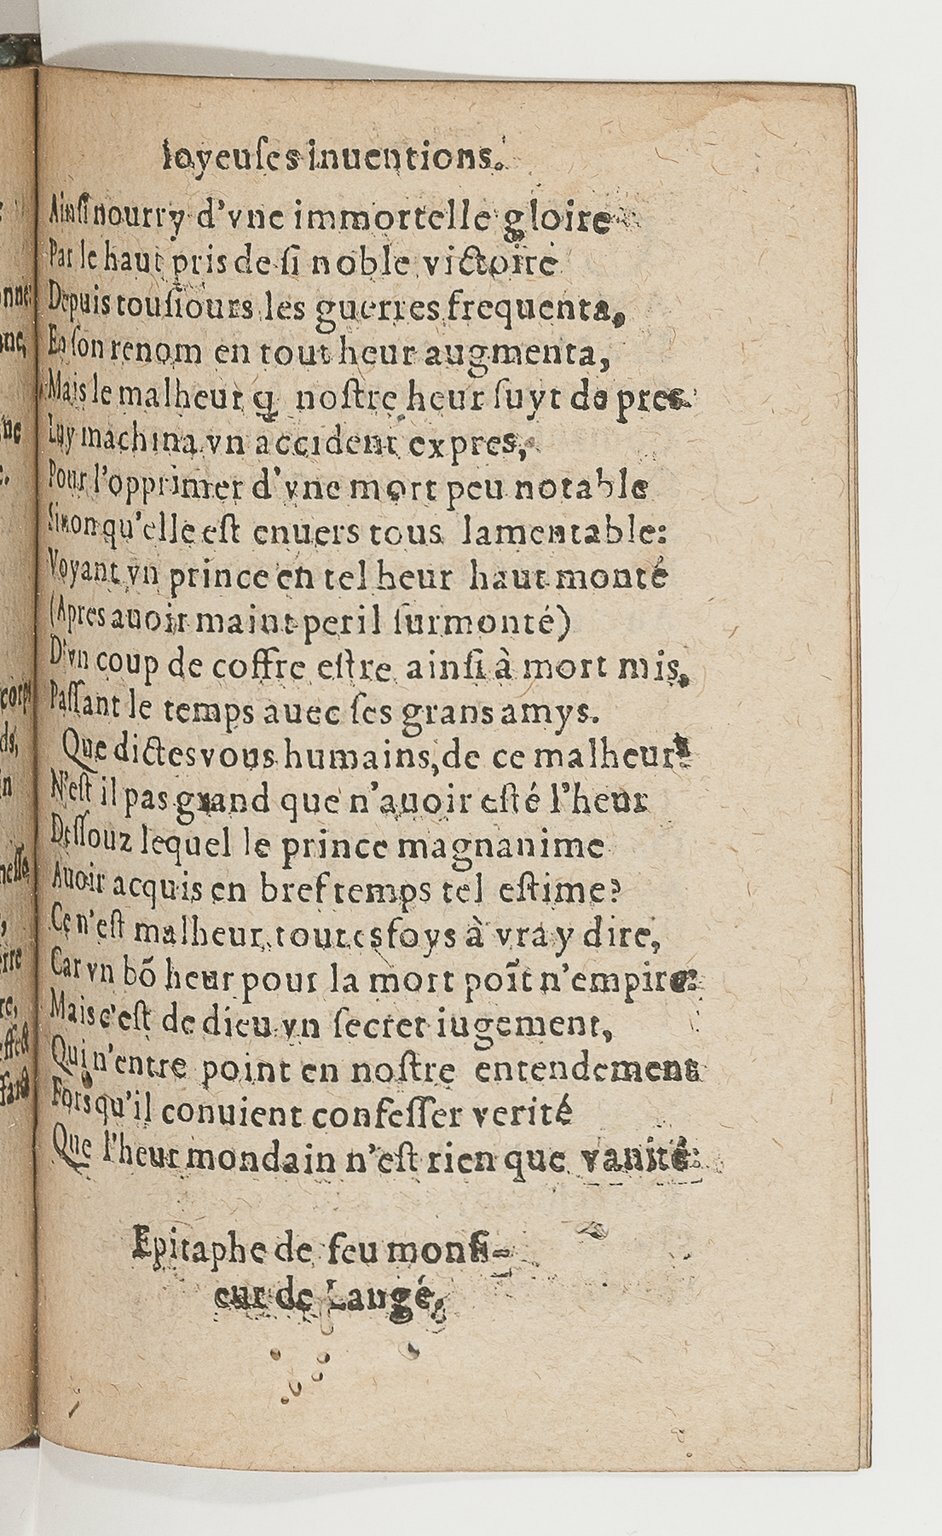 Ioyeuſes inuentions.
Ainſi nourry d'vne immortelle gloire
Par le haut pris de ſi noble victoire
Depuis touſiours les guerres frequenta,
En ſon renom en tout heur augmenta,
Mais le malheur q̃ noſtre heur ſuyt de pres
Luy machina vn accident expres,
Pour l'opprimer d'vne mort peu notable
Sinon qu'elle eſt enuers tous lamentable:
Voyant vn prince en tel heur haut monté
(Apres auoir maint peril ſurmonté)
D'vn coup de coffre eſtre ainſi à mort mis,
Paſſant le temps auec ſes grans amys.
Que dictes vous humains, de ce malheur?
N'eſt il pas grand que n'auoir eſté l'heur
Deſſouz lequel le prince magnanime
Auoir acquis en bref temps tel eſtime?
Ce n'eſt malheur, toutesfoys à vray dire,
Car vn bõ heur pour la mort poĩt n'empire:
Mais c'eſt de dieu vn ſecret iugement,
Qui n'entre point en noſtre entendement
Fors qu'il conuient confeſſer verité
Que l'heur mondain n'eſt rien que vanité:
Epitaphe de feu monſi-
eur de Langé,